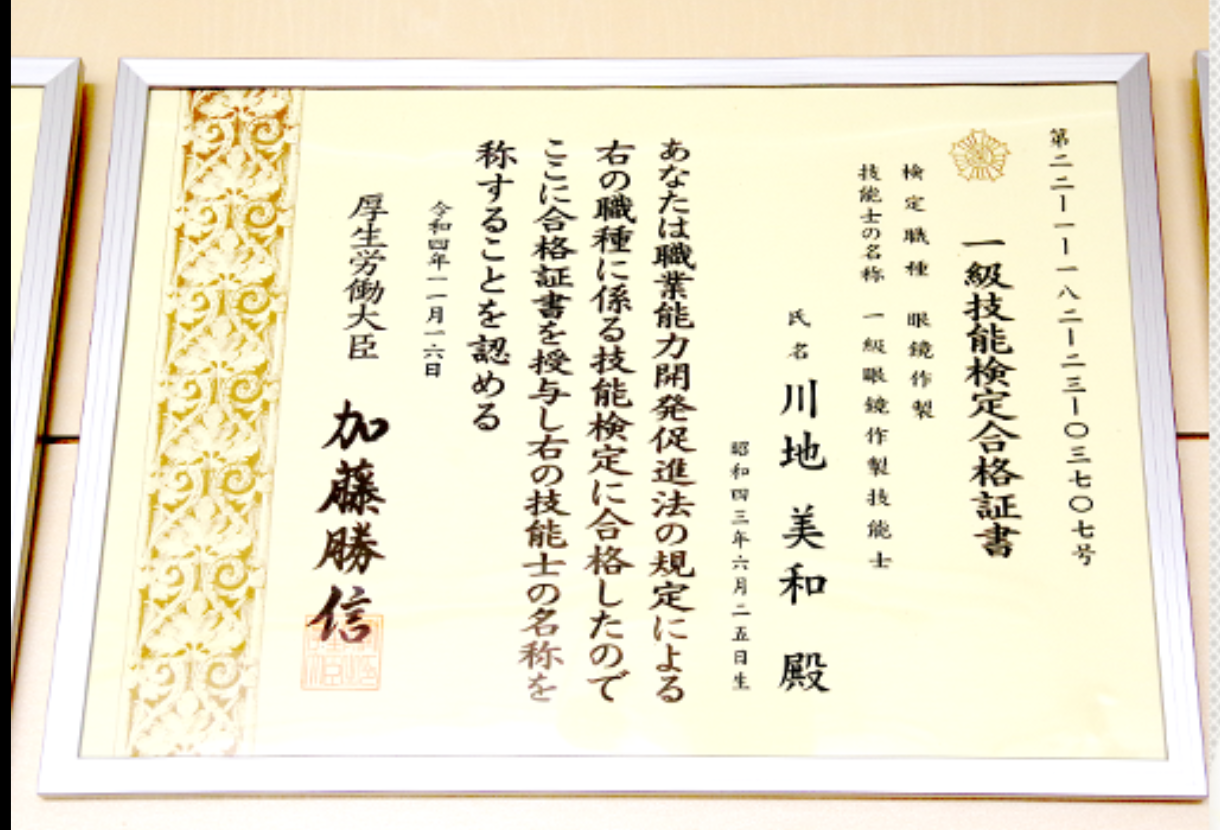 第二二ー一ー一八二ー二三ー〇三七〇七号
一級技能検定合格証書
検定職種 眼鏡作製
技能士の名称 一級眼鏡作製技能士
氏名 川地 美和 殿
昭和四三年六月二五日生
あなたは職業能力開発促進法の規定による
右の職種に係る技能検定に合格したので
ここに合格証書を授与し右の技能士の名称を
称することを認める
令和四年一一月一六日
厚生労働大臣 加藤勝信